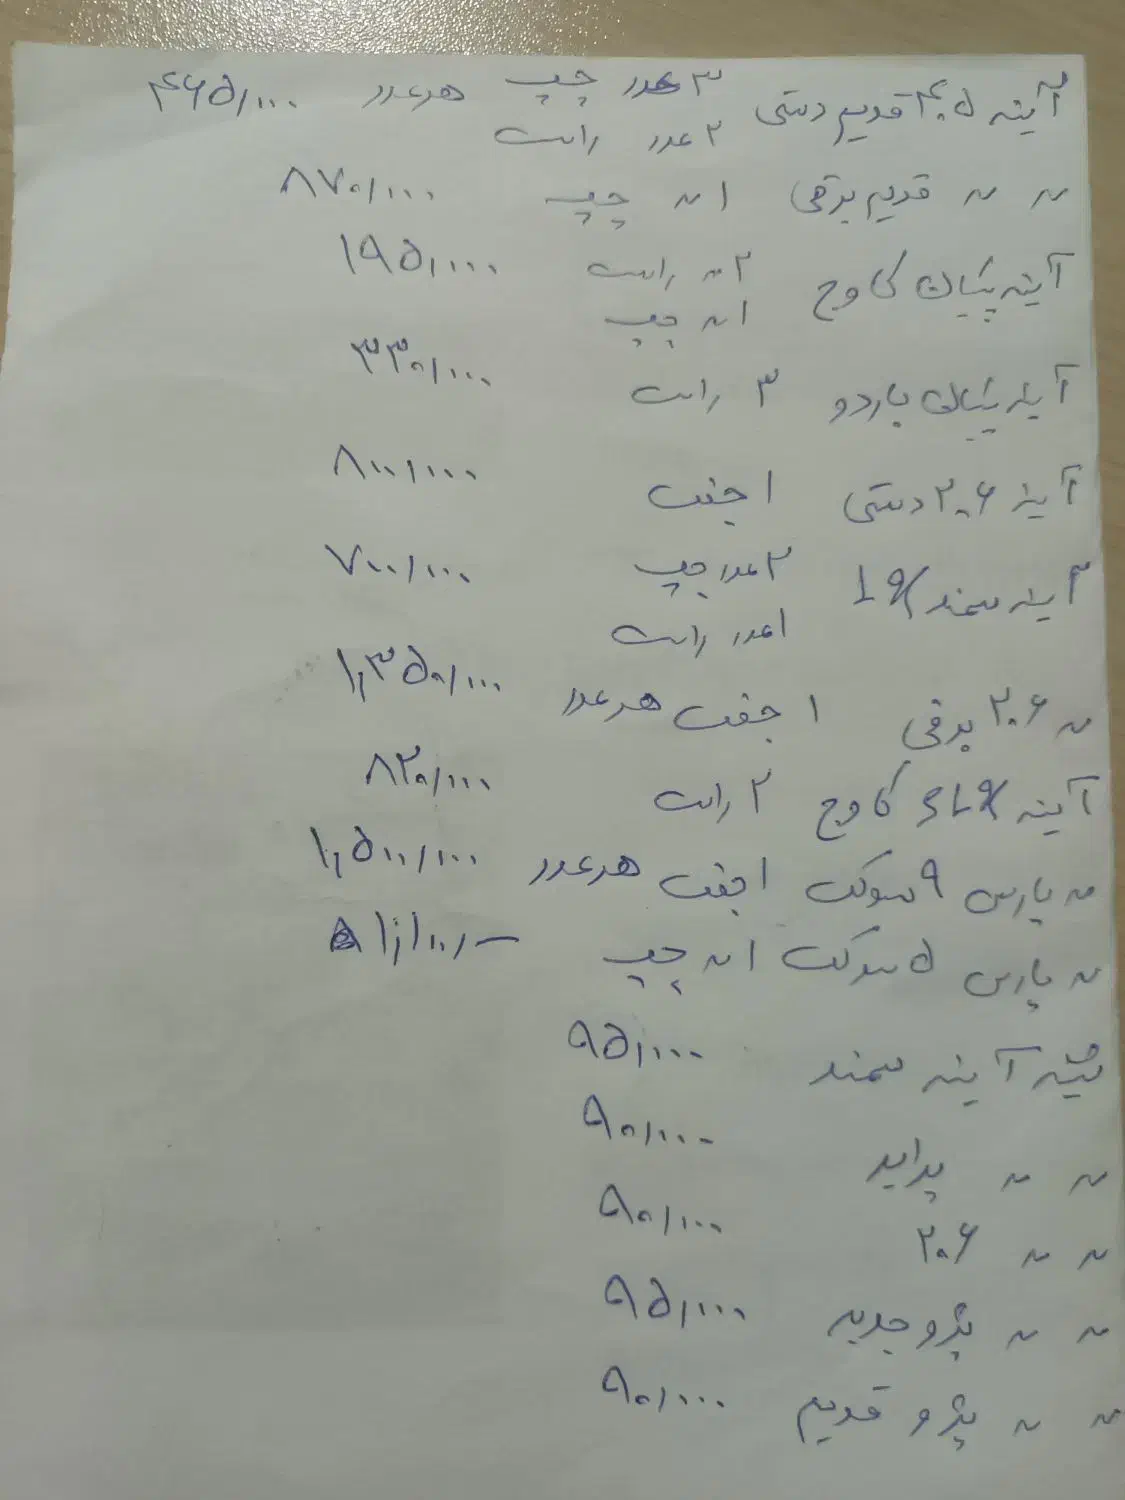 آینه ۴۰۵ قدیم دستی ۳ عدد چپ هر عدد ۴۶۵/۰۰۰
۲ عدد راست
〃 〃 قدیم برقی ۱ 〃 چپ ۸۷۰/۰۰۰
آینه پیکان کاوج ۲ 〃 راست ۱۹۵/۰۰۰
۱ 〃 چپ
آینه پیکان باردو ۳ راست ۳۳۰/۰۰۰
آینه ۲۰۶ دستی ۱ جفت ۸۰۰/۰۰۰
آینه سمند ۲ عدد چپ ۷۰۰/۰۰۰
۱ عدد راست
〃 ۲۰۶ برقی ۱ جفت هر عدد ۱,۳۵۰/۰۰۰
آینه کاوج ۲ راست ۸۲۰/۰۰۰
〃 پارس ۹ سوکت ۱ جفت هر عدد ۱,۵۰۰/۰۰۰
〃 پارس ۵ سوکت ۱ 〃 چپ
شیشه آینه سمند ۹۵/۰۰۰
〃 〃 پراید ۹۰/۰۰۰
〃 〃 ۲۰۶ ۹۰/۰۰۰
〃 〃 پژو جدید ۹۵/۰۰۰
〃 〃 پژو قدیم ۹۰/۰۰۰